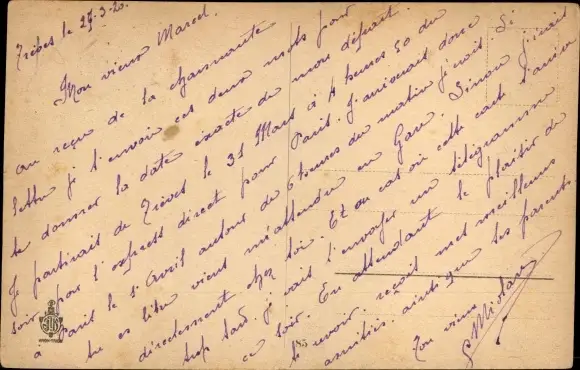 Trèves le 27-3-20.
Mon vieux Marcel.
au reçue de ta charmante
lettre je t'envoie ces deux mots pour
te donner la date exacte de mon départ.
Je partirait de Trèves le 31 Mars à 4 heures 50 du
soir pour l'express direct pour Paris. J'arriverait donc
à Paris le 1 Avril autour de 6 heures du matin
tu es libre vient m'attendre en Gare. Sinon j'irait
directement chez toi. Et au cas où cette carte t'arrive
trop tard je vais t'envoyer un télégramme
ce soir. En attendant le plaisir de
te revoir, reçoit mes meilleures
amitiés ainsi que tes parents
Ton vieux